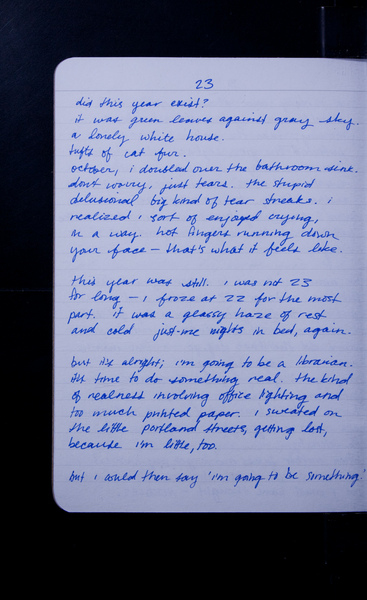 23
did this year exist?
it was green leaves against gray sky.
a lonely white house.
tufts of cat fur.
october, i doubled over the bathroom sink.
don't worry, just tears. the stupid
delusional big kind of tear streaks. i
realized i sort of enjoyed crying,
in a way. hot fingers running down
your face – that's what it feels like.
this year was still. i was not 23
for long – i froze at 22 for the most
part. it was a glassy haze of rest
and cold just-me nights in bed, again.
but it's alright; i'm going to be a librarian.
it's time to do something real. the kind
of realness involving office lighting and
too much printed paper. i sweated on
the little portland streets, getting lost,
because i'm little, too.
but i would then say 'i'm going to be something'